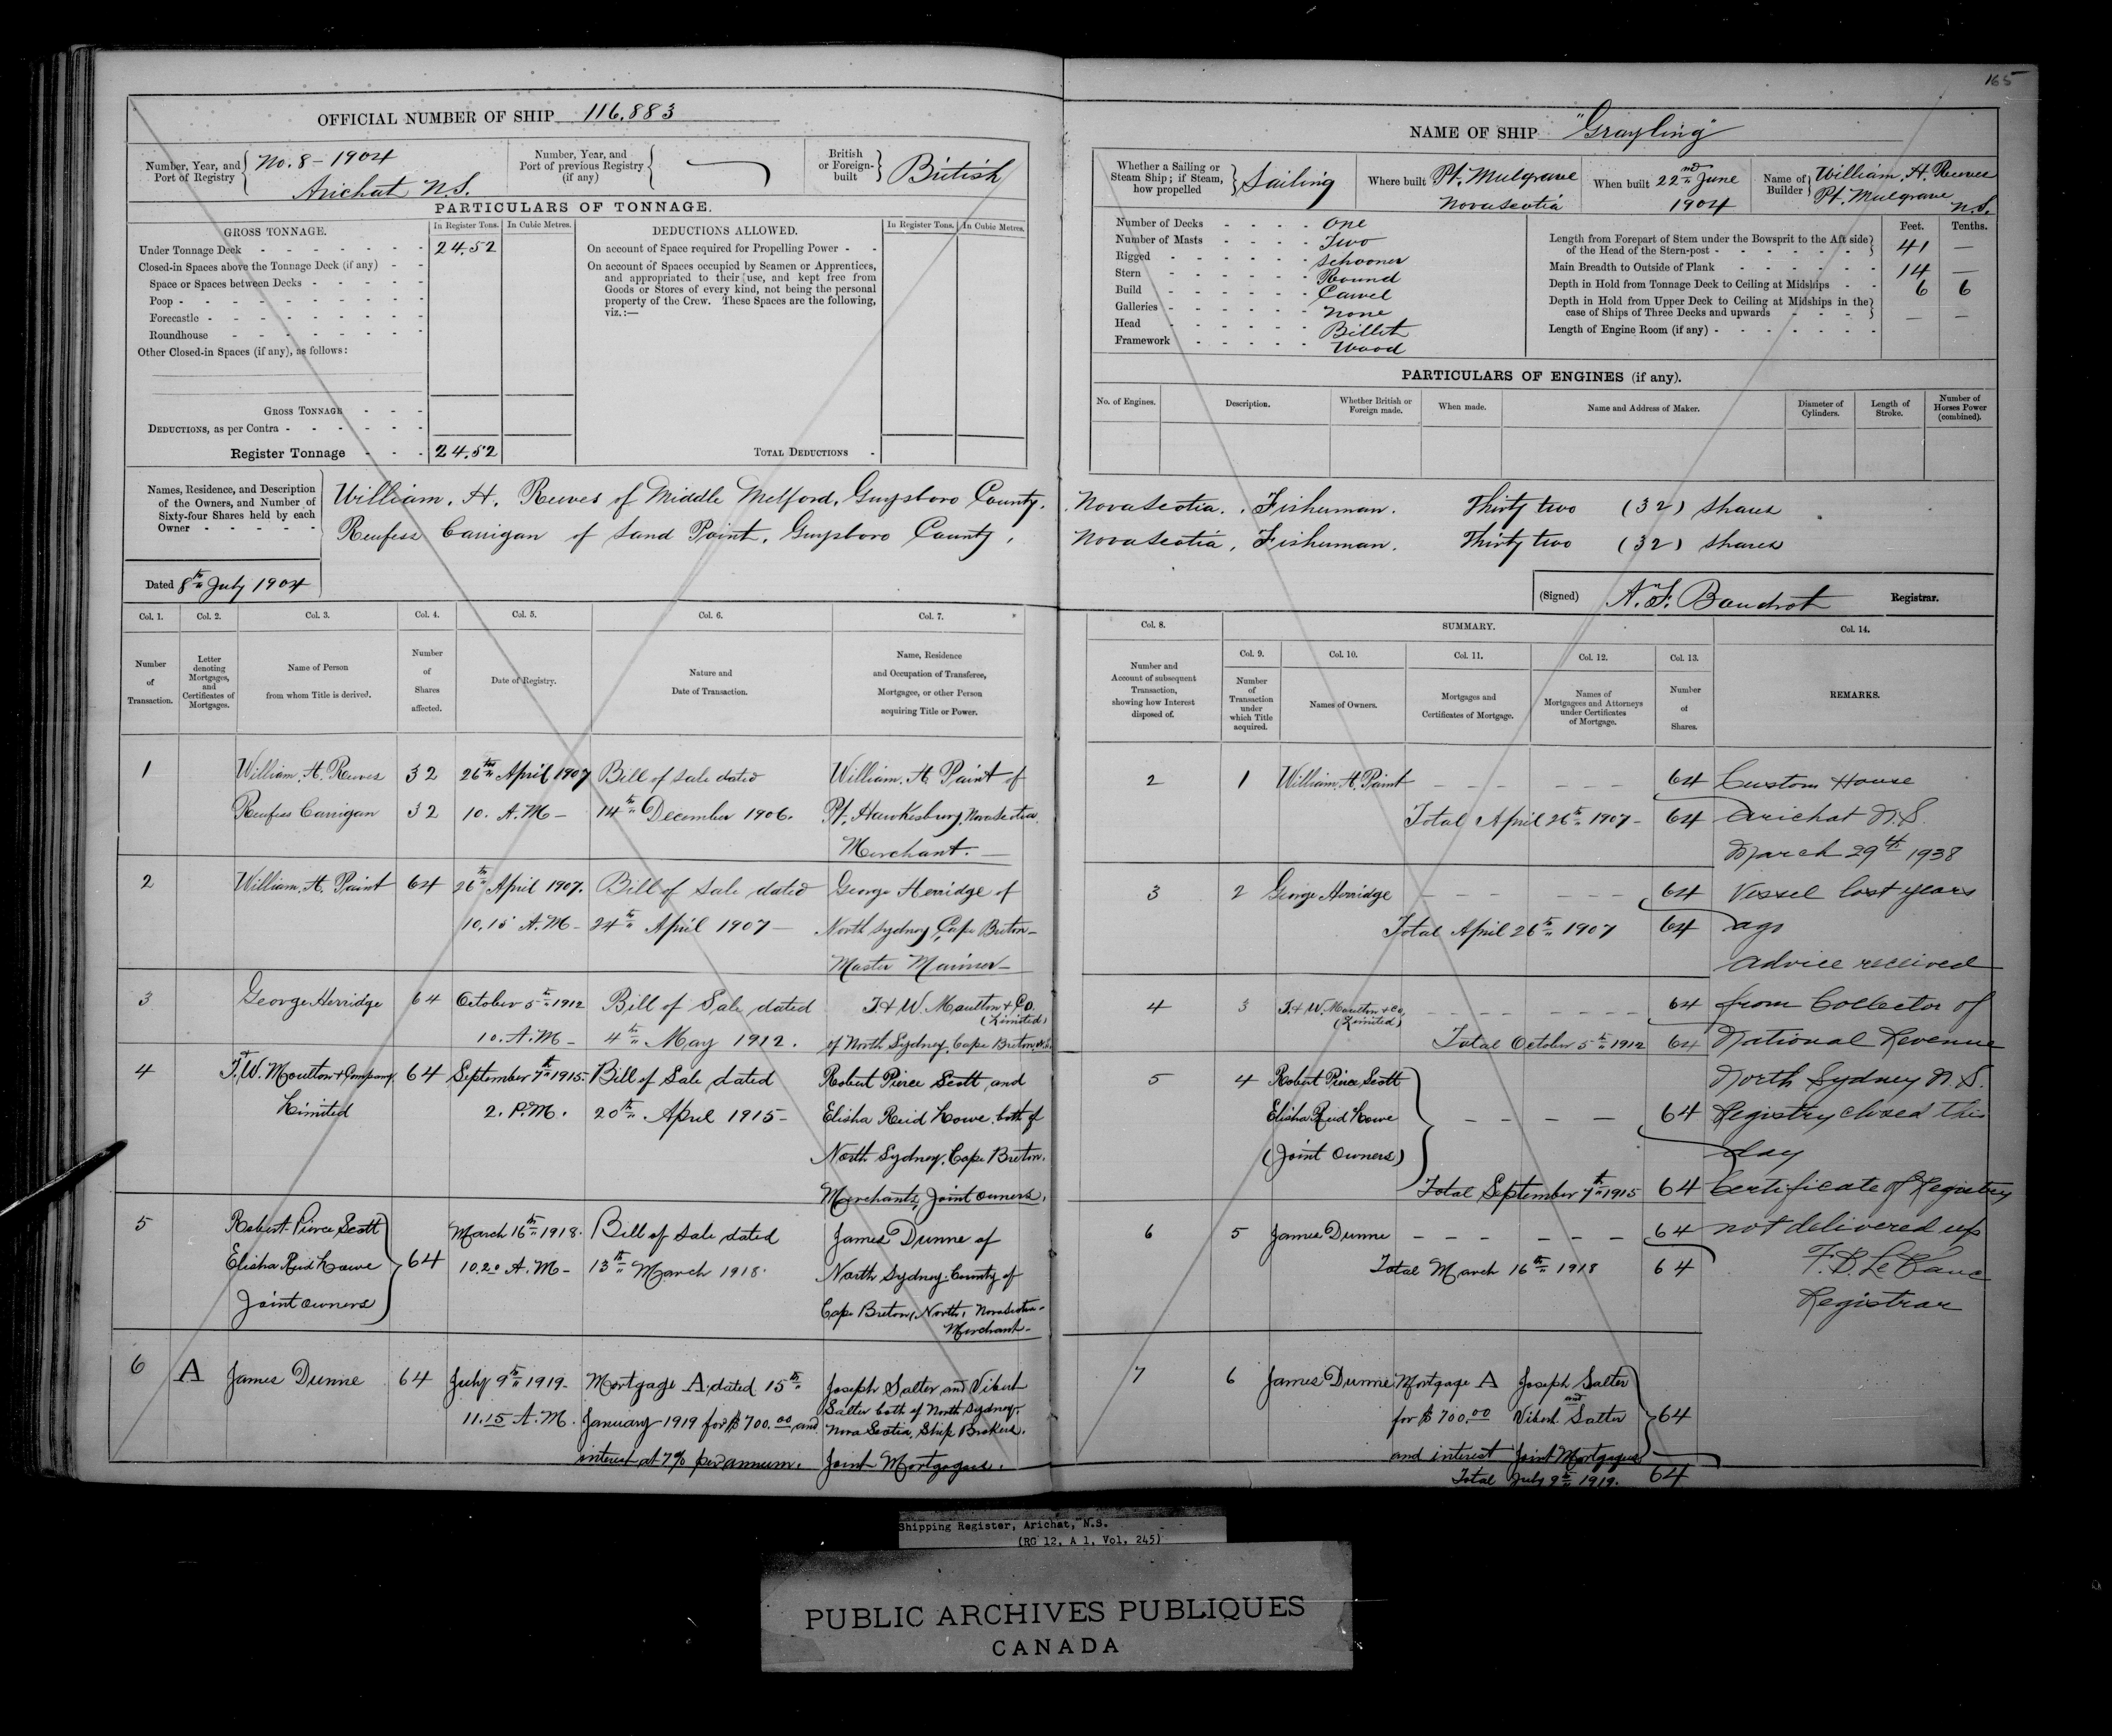 165
OFFICIAL NUMBER OF SHIP 116,883
NAME OF SHIP "Grayling"
Number, Year, and Port of Registry No. 8 - 1904 Arichat N.S.
Number, Year, and Port of previous Registry (if any)
British or Foreign-built British
Whether a Sailing or Steam Ship; if Steam, how propelled Sailing
Where built Pt. Mulgrave Nova Scotia
When built 22nd June 1904
Name of Builder William. H. Reeves Pt. Mulgrave N.S.
PARTICULARS OF TONNAGE.
GROSS TONNAGE.
In Register Tons. In Cubic Metres.
Under Tonnage Deck 24.52
Closed-in Spaces above the Tonnage Deck (if any)
Space or Spaces between Decks
Poop
Forecastle
Roundhouse
Other Closed-in Spaces (if any), as follows:
GROSS TONNAGE
DEDUCTIONS, as per Contra
Register Tonnage 24.52
DEDUCTIONS ALLOWED.
In Register Tons. In Cubic Metres.
On account of Space required for Propelling Power
On account of Spaces occupied by Seamen or Apprentices,
and appropriated to their use, and kept free from
Goods or Stores of every kind, not being the personal
property of the Crew. These Spaces are the following,
viz.:—
TOTAL DEDUCTIONS
Number of Decks One
Number of Masts Two
Rigged Schooner
Stern Round
Build Carvel
Galleries None
Head Billet
Framework Wood
Feet. Tenths.
Length from Forepart of Stem under the Bowsprit to the Aft side of the Head of the Stern-post 41 —
Main Breadth to Outside of Plank 14 —
Depth in Hold from Tonnage Deck to Ceiling at Midships 6 6
Depth in Hold from Upper Deck to Ceiling at Midships in the case of Ships of Three Decks and upwards — —
Length of Engine Room (if any)
PARTICULARS OF ENGINES (if any).
No. of Engines. Description. Whether British or Foreign made. When made. Name and Address of Maker. Diameter of Cylinders. Length of Stroke. Number of Horses Power (combined).
Names, Residence, and Description of the Owners, and Number of Sixty-four Shares held by each Owner
William. H. Reeves of Middle Melford, Guysboro County, Nova Scotia. Fisherman. Thirty two (32) shares
Reufess Carrigan of Sand Point, Guysboro County, Nova Scotia, Fisherman. Thirty two (32) shares
Dated 8th July 1904
(Signed) Registrar.
Col. 1. Col. 2. Col. 3. Col. 4. Col. 5. Col. 6. Col. 7.
Number of Transaction.
Letter denoting Mortgages, and Certificates of Mortgages.
Name of Person from whom Title is derived.
Number of Shares affected.
Date of Registry.
Nature and Date of Transaction.
Name, Residence and Occupation of Transferee, Mortgagee, or other Person acquiring Title or Power.
Col. 8. SUMMARY. Col. 14.
Col. 9. Col. 10. Col. 11. Col. 12. Col. 13.
Number and Account of subsequent Transaction, showing how Interest disposed of.
Number of Transaction under which Title acquired.
Names of Owners.
Mortgages and Certificates of Mortgage.
Names of Mortgagees and Attorneys under Certificates of Mortgage.
Number of Shares.
REMARKS.
1 William. H. Reeves 32 26th April 1907 Bill of Sale dated William. H. Paint of
Reufess Carrigan 32 10. A.M — 14th December 1906. Pt. Hawkesbury, Nova Scotia.
Merchant. —
2 William. H. Paint 64 26th April 1907. Bill of Sale dated George Herridge of
10.15 A.M — 24th April 1907 — North Sydney, Cape Breton —
Master Mariner —
3 George Herridge 64 October 5th 1912 Bill of Sale dated J. & W. Moulton & Co.
(Limited)
10. A.M — 4th May 1912. of North Sydney, Cape Breton, N.S.
4 J. & W. Moulton & Company 64 September 7th 1915. Bill of Sale dated Robert Pierce Scott and
Limited 2. P.M. 20th April 1915 — Elisha Reid Howe, both of
North Sydney, Cape Breton.
Merchants, Joint owners.
5 Robert Pierce Scott 64 March 16th 1918. Bill of Sale dated James Dunne of
Elisha Reid Howe 10.20 A.M — 13th March 1918. North Sydney, County of
Joint owners Cape Breton, North, Nova Scotia —
Merchant —
6 A James Dunne 64 July 9th 1919 — Mortgage A, dated 15th Joseph Salter and Vibert
11.15 A.M. January 1919 for $700.00 and Salter both of North Sydney,
Nova Scotia, Ship Brokers.
interest at 7% per annum. Joint Mortgagees.
2 1 William. H. Paint 64
Total April 26th 1907 — 64
3 2 George Herridge 64
Total April 26th 1907 64
4 3 J. & W. Moulton & Co. 64
(Limited)
Total October 5th 1912 64
5 4 Robert Pierce Scott
Elisha Reid Howe 64
(Joint Owners)
Total September 7th 1915 64
6 5 James Dunne 64
Total March 16th 1918 64
7 6 James Dunne Mortgage A Joseph Salter
and
for $700.00 Vibert Salter 64
and interest Joint Mortgagees
Total July 9th 1919. 64
Custom House
Arichat N.S.
March 29th 1938
Vessel lost years
ago
Advice received
from Collector of
National Revenue
North Sydney N.S.
Registry closed this
day
Certificate of Registry
not delivered up
F.D. LeBlanc
Registrar
Shipping Register, Arichat, N.S.
(RG 12, A 1, Vol. 245)
PUBLIC ARCHIVES PUBLIQUES
CANADA